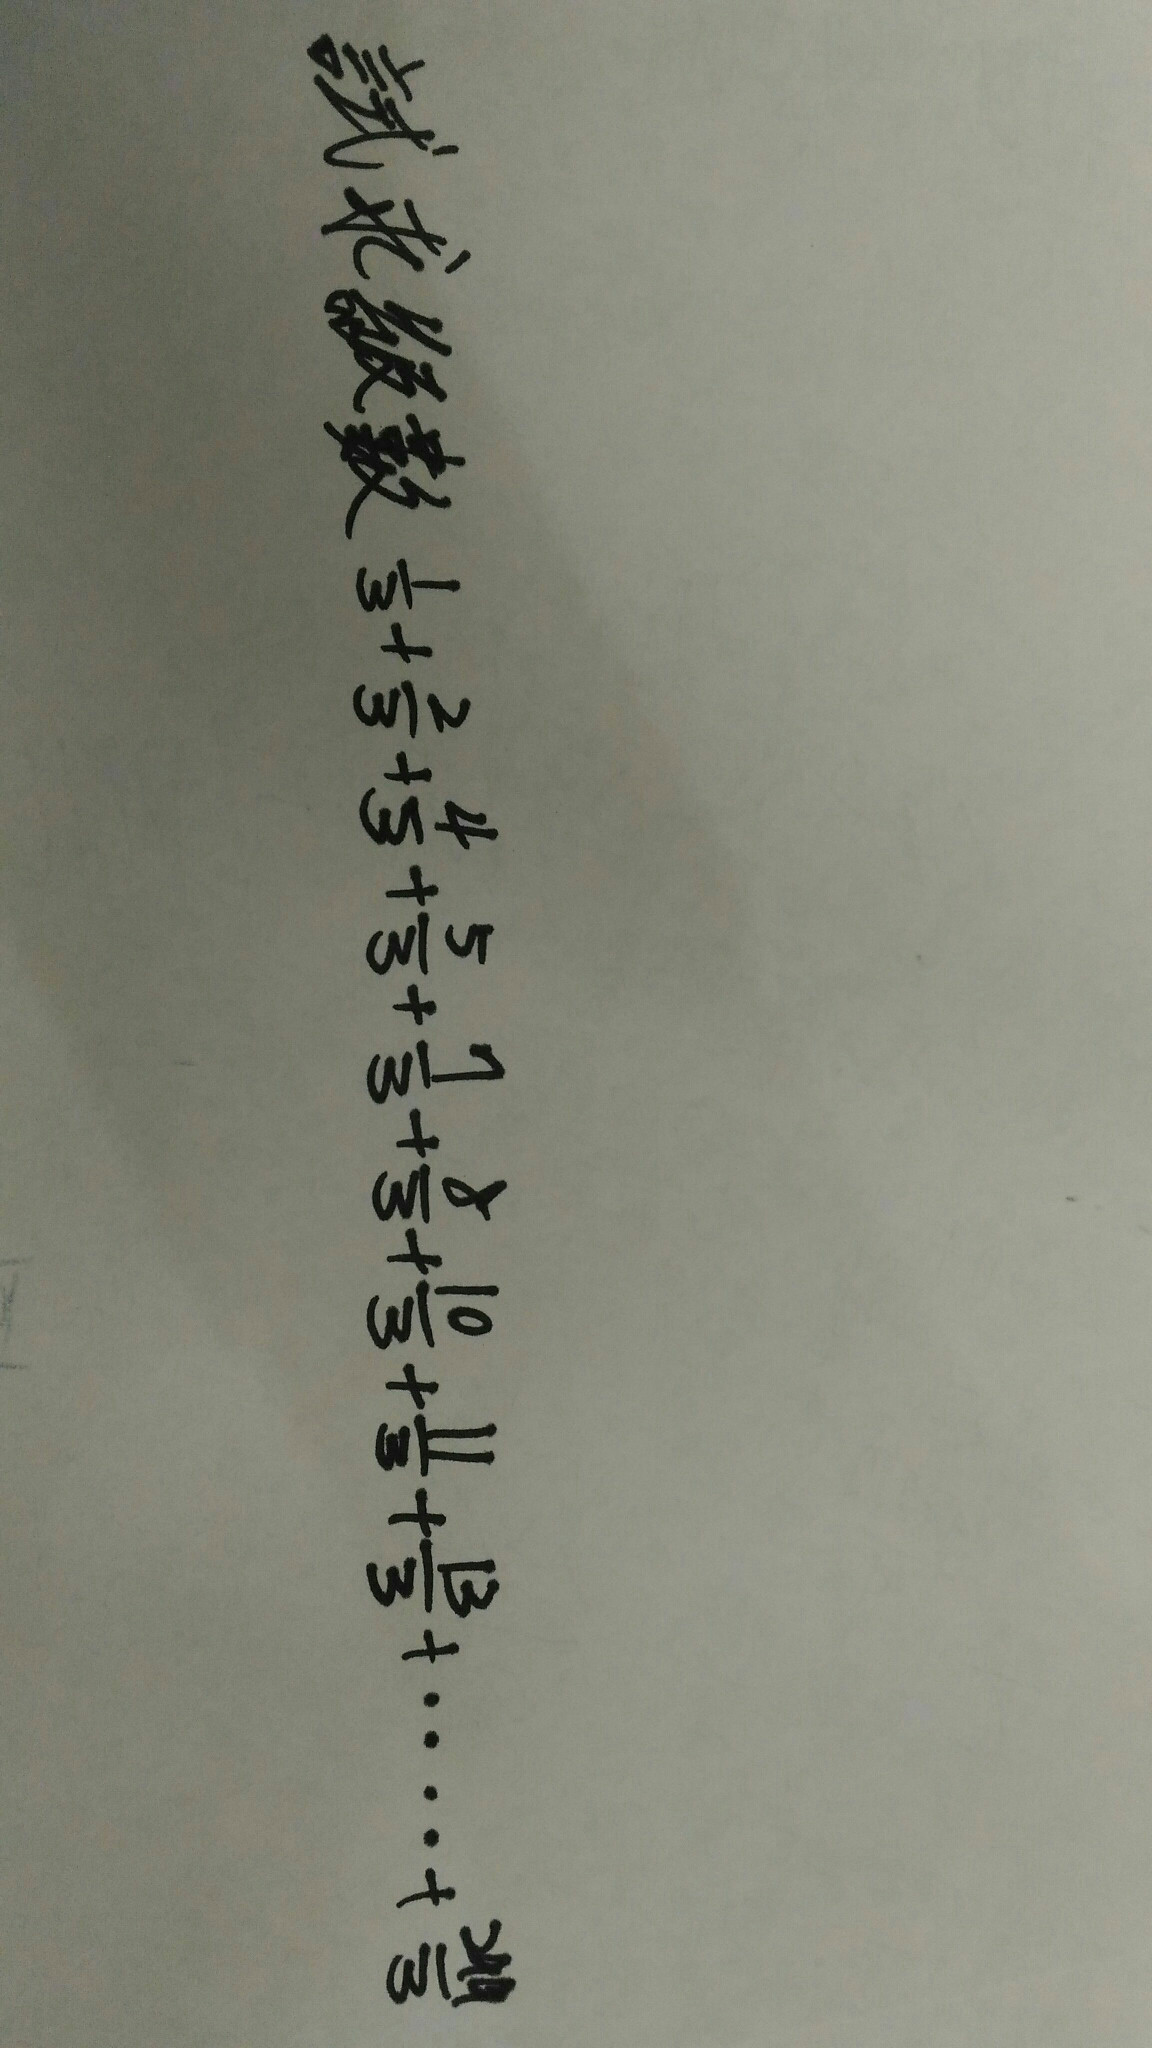 試求級數 1/3 + 2/3 + 4/3 + 5/3 + 7/3 + 8/3 + 10/3 + 11/3 + 13/3 + ....+